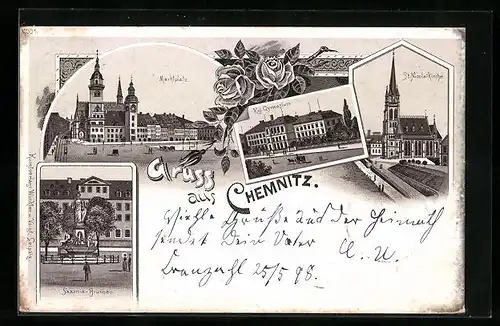 Marktplatz
Kgl. Gymnasium
St. Nicolaikirche
Gruss
aus
CHEMNITZ.
Saxonia-Brunnen
Viele Grüße aus der Heimath
sendet Dein Vater
Cranzahl 25/5 98.